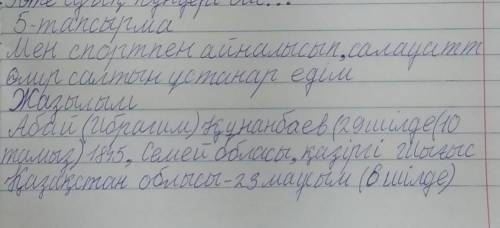 Өте суық күндері біз...
5-тапсырма
Мен спортпен айналысып, салауатт
өмір салтын ұстанар едім
Жазылым
Абай (Ибрагим) Құнанбаев (29шілде(10
тамыз) 1845, Семей обласы, қазіргі Шығыс
Қазақстан облысы-23маусым (6шілде)